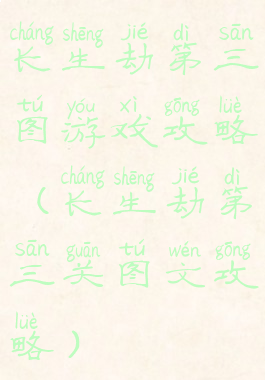 cháng shēng jié dì sān
长生劫第三
tú yóu xì gōng lüè
图游戏攻略
cháng shēng jié dì
（长生劫第
sān guān tú wén gōng
三关图文攻
lüè
略）